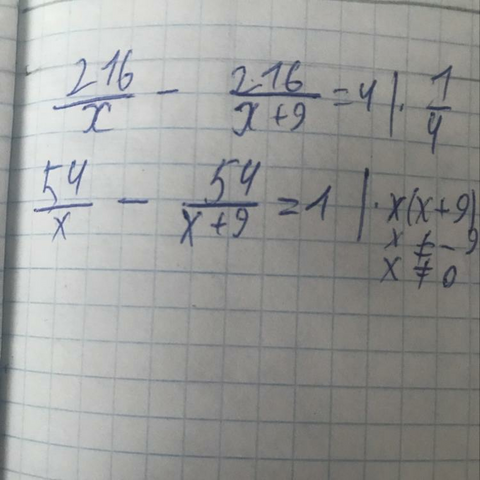 216/x - 216/(x+9) = 4 | · 1/4
54/x - 54/(x+9) = 1 | · x(x+9)
x ≠ -9
x ≠ 0